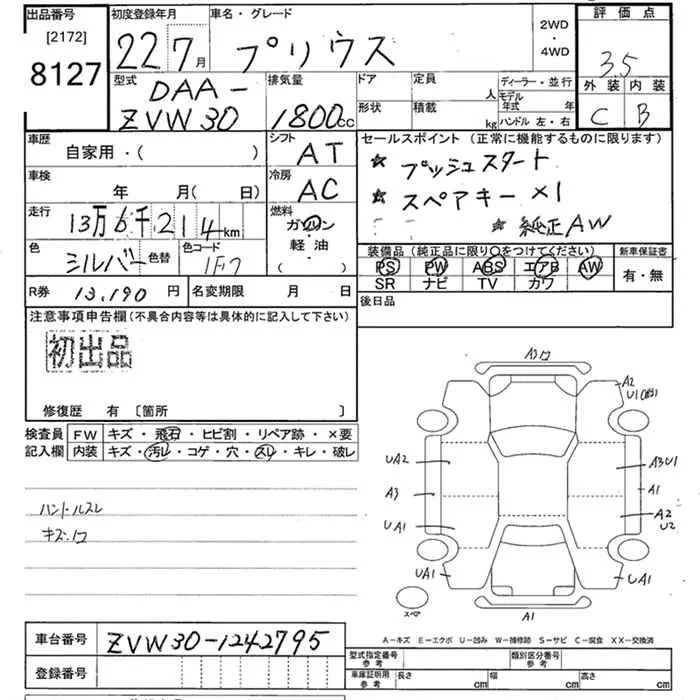 出品番号
[2172]
8127
初度登録年月
22 7月
車名・グレード
プリウス
2WD
・
4WD
評価点
3.5
外装 内装
C B
型式
DAA-
ZVW30
排気量
1800cc
ドア
定員
人
ディーラー・並行
モデル
年式 年
形状
積載
kg
ハンドル 左・右
車歴
自家用・( )
シフト
AT
車検
年 月( 日)
冷房
AC
走行
13万6千214km
燃料
ガソリン
軽油
( )
色
シルバー
色替
色コード
1F7
R券
13,190円
名変期限 月 日
セールスポイント (正常に機能するものに限ります)
★ プッシュスタート
★ スペアキー×1
★ 純正AW
装備品 (純正品に限り○をつけてください)
新車保証書
PS PW ABS エアB AW
SR ナビ TV カワ
有・無
後日品
注意事項申告欄 (不具合内容等は具体的に記入して下さい)
初出品
修復歴 有 〔箇所 〕
検査員
記入欄
FW キズ・飛石・ヒビ割・リペア跡・×要
内装 キズ・汚レ・コゲ・穴・スレ・キレ・破レ
ハンドルスレ
A3
A2
U1
UA2
A3U1
A3
A1
UA1
A2
U2
UA1
UA1
スペア
A1
A-キズ E-エクボ U-凹み W-補修跡 S-サビ C-腐食 XX-交換済
車台番号
ZVW30-1242795
登録番号
型式指定番号
参考
類別区分番号
参考
車庫証明用
参考
長さ cm
幅 cm
高さ cm